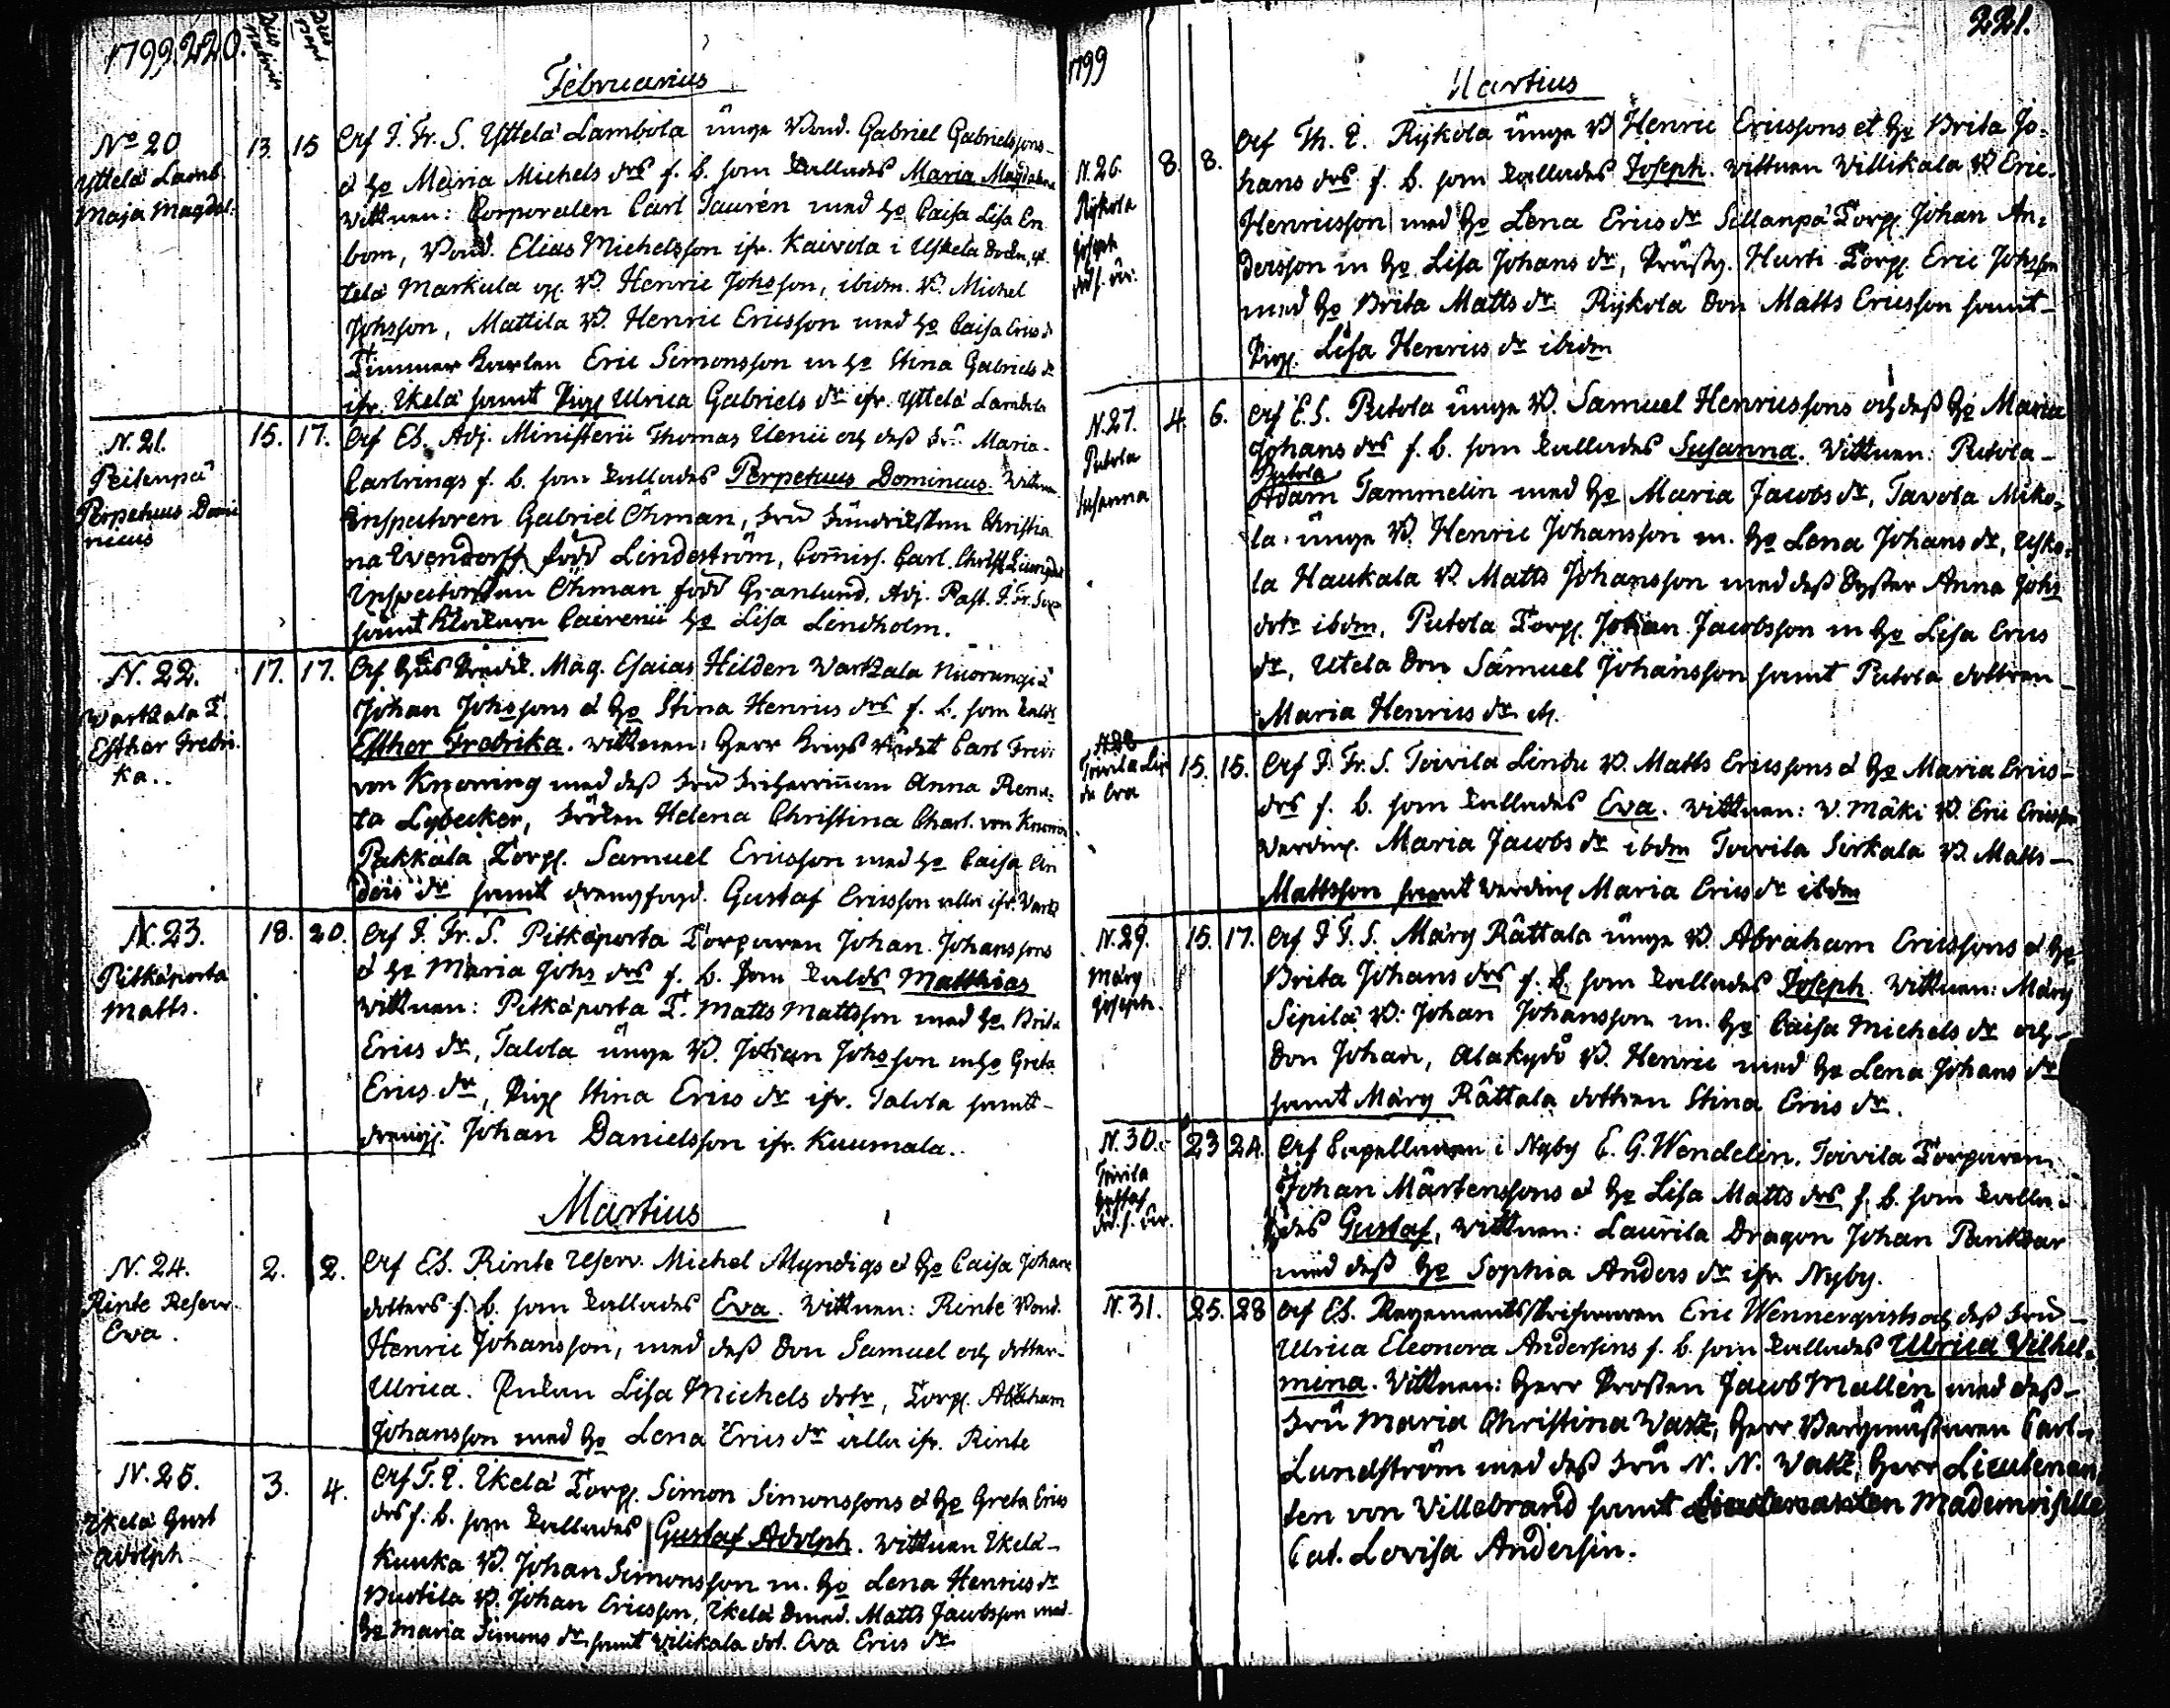 1799. 220.
Februarius
No 20
Yttelä Lamb.
Maja Magdal.
13. 15
af P. Fr. S. Yttelä Lambola unge Bond. Gabriel Gabrielssons
& Ho Maria Michels drs f. b. som kallades Maria Magdalena
Wittnen: Corporalen Carl Taurén med Ho Caisa Lisa En
bom, Bond. Elias Michelsson ifr. Kaivola i Uskela
telä Markula B. Henric Johsson, ibidm. B. Michel
Johsson, Mattila B. Henric Ericsson med Ho Caisa Erics dr
Timmer karlen Eric Simonsson m Ho Stina Gabriels dr
ifr. Ikelä samt Pig. Ulrica Gabriels dr ifr. Yttelä Lambola
N. 21.
Peitenpä
Perpetuus Domi
nicus
15. 17.
af Es. Adj. Ministerii Thomas Uenii och dess Fru Maria
Carlrings f. b. som kallades Perpetuus Dominicus. Wittnen
Inspectoren Gabriel Öhman, Fru Christia
na Evendorff född Lindeström, Commiss. Carl
Inspectorskan Öhman född Granlund, Adj. Past. P. Fr.
samt Klockaren Cairenii Ho Lisa Lindholm.
N. 22.
Wartzala T.
Esther Fredri
ka.
17. 17.
af Hus Predik. Mag. Esaias Hilden Wartzala Nuorungi
Johan Johssons & Ho Stina Henrics drs f. b. som kalds
Esther Fredrika. wittnen: Herr Krigs Rådet Carl Fredr
von Knorring med dess Fru Friherrinnan Anna Rena
ta Lybecker, Fröken Helena Christina Charl. von Knorring
Pakkala Torp. Samuel Ericsson med Ho Caisa An
ders dr samt drengfogd. Gustaf Ericsson alla ifr. Wartz
N. 23.
Pitkäporta
Matts.
18. 20.
af P. Fr. S. Pitkäporta Torparen Johan Johanssons
& Ho Maria Johs drs f. b. som kalds Matthias
Wittnen: Pitkäporta T. Matts Mattsson med Ho Brita
Erics dr, Talola unge B. Johan Johsson m Ho Greta
Erics dr, Pig. Stina Erics dr ifr. Talola samt
dreng. Johan Danielsson ifr. Kuumala.
Martius
N. 24.
Rinte Reserv
Eva.
2. 2.
af Es. Rinte Reserv. Michel Myndigs & Ho Caisa Johans
dotters f. b. som kallades Eva. Wittnen: Rinte Bond.
Henric Johansson, med dess Son Samuel och dotter
Ulrica. Enkan Lisa Michels dotr, Torp. Abraham
Johansson med Ho Lena Erics dr alla ifr. Rinte
N. 25.
Ikelä Gust
Adolph
3. 4.
af T. E. Ikelä Torp. Simon Simonssons & Ho Greta Erics
drs f. b. som kallades Gustaf Adolph. Wittnen Ikelä
Kuuka B. Johan Simonsson m. Ho Lena Henrics dr
Nuotila B. Johan Ericsson, Ikelä Matts Jacobsson med
Ho Maria Simons dr samt Wilikala dot. Eva Erics dr
1799
221.
Martius
N. 26.
Rykola
Joseph
8. 8.
af Th. E. Rykola unge B Henric Ericssons et Ho Brita Jo-
hans drs f. b. som kallades Joseph. Wittnen Willikala B Eric
Henricsson med Ho Lena Erics dr Sillanpä Torp. Johan An-
dersson m Ho Lisa Johans dr, Hurti Torp. Eric Johsson
med Ho Brita Matts dr Rykola Son Matts Ericsson samt
Pig. Lisa Henrics dr ibidm
N. 27.
Putola
Susanna
4. 6.
af E. S. Putola unge B. Samuel Henricssons och dess Ho Maria
Johans drs f. b. som kallades Susanna. Wittnen: Putola
Putola
Adam Tammelin med Ho Maria Jacobs dr, Tavola Miko-
la unge B. Henric Johansson m. Ho Lena Johans dr, Uske-
la Haukala B. Matts Johansson med dess Syster Anna Johs
dotr ibdm, Putola Torp. Johan Jacobsson m Ho Lisa Erics
dr, Utela Son Samuel Johansson samt Putola dottren
Maria Henrics dr
N. 28
Toivila Lin
du Eva
15. 15.
af P. Fr. S. Toivila Lindu B. Matts Ericssons & Ho Maria Erics
drs f. b. som kallades Eva. Wittnen: W. Mäki B. Eric Ericsson
Werding. Maria Jacobs dr ibdm Toivila Sirkala B. Matts
Mattsson samt Werding Maria Erics dr ibdm
N. 29.
Märy
Joseph.
15. 17.
af P. F. S. Märy Rättala unge B. Abraham Ericssons & Ho
Brita Johans drs f. b. som kallades Joseph. Wittnen: Märy
Sipilä B. Johan Johansson m. Ho Caisa Michels dr och
Son Johan, Alakydö B. Henric med Ho Lena Johans dr
samt Märy Rättala dottren Stina Erics dr.
N. 30.
Toivila
Gustaf
23 24.
af Capellanen i Nyby E. G. Wendelin. Toivila Torparen
Johan Mårtenssons & Ho Lisa Matts drs f. b. som kalla-
des Gustaf, Wittnen: Laurila Dragon Johan Panktar
med dess Ho Sophia Anders dr ifr Nyby.
N. 31.
25. 28
af Es. Regements Skrifwaren Eric Wennerqvists och dess Fru
Ulrica Eleonora Andersins f. b. som kallades Ulrica Vilhel-
mina. Wittnen: Herr Prosten Jacob Mallén med dess
Fru Maria Christina Watz, Herr Bergmästaren Carl
Lundström med dess Fru N. N. Watz, Herr Lieutenan
ten von Villebrand samt Lieutenanten Mademoiselle
Cat. Lovisa Andersin.